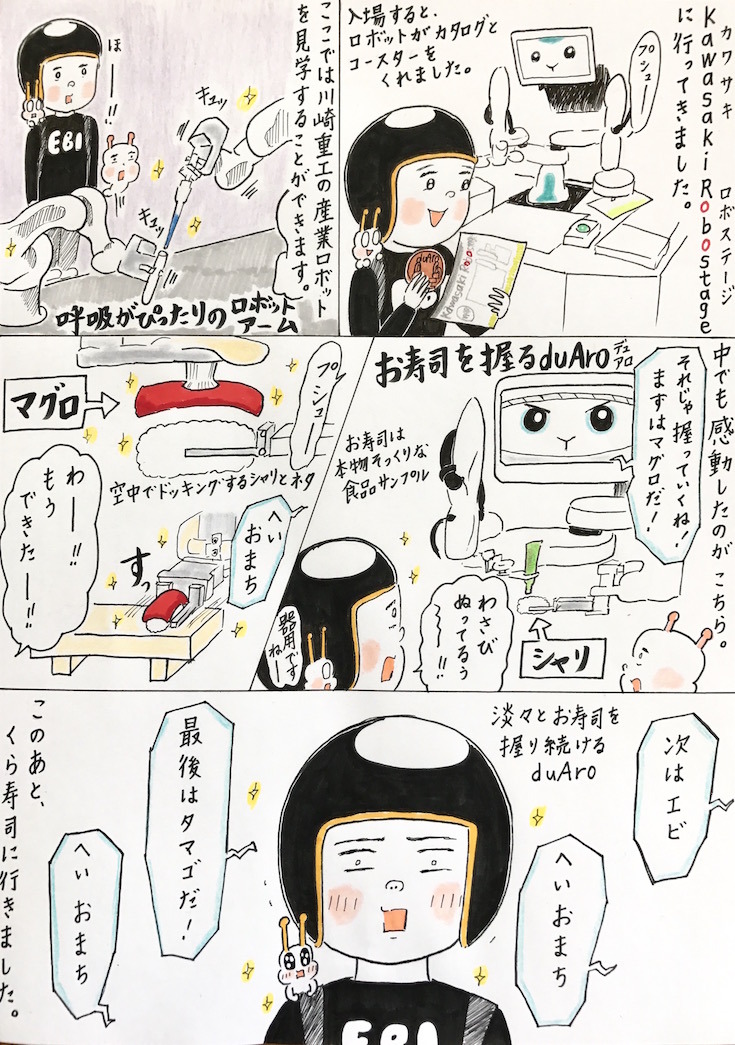 カワサキ　ロボステージ
Kawasaki Robostage
に行ってきました。
入場すると、
ロボットがカタログと
コースターを
くれました。
プシュー
duAro
Kawasaki Robo
ここでは川崎重工の産業ロボット
を見学することができます。
ほーー!!
EBI
キュッ
キュッ
呼吸がぴったりのロボット
アーム
中でも感動したのがこちら。
お寿司を握るduAro
デュアロ
それじゃ握っていくね!
まずはマグロだ!
お寿司は
本物そっくりな
食品サンプル
わさび
ぬってるぅ
ーー!!
シャリ
器用です
ねー
プシュー
マグロ
空中でドッキングするシャリとネタ
へい
おまち
すっ
わー!!
もう
できたー!!
次はエビ
淡々とお寿司を
握り続ける
duAro
へい おまち
最後はタマゴだ!
へい おまち
EBI
このあと、
くら寿司に行きました。